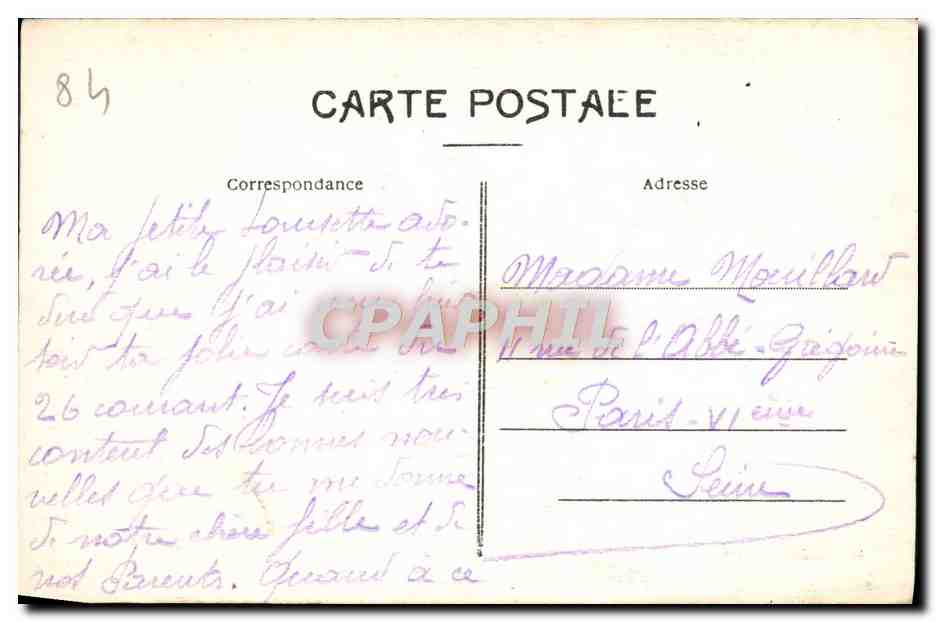 84
CARTE POSTALE
Correspondance
Ma petite Lousette ado-
rée, j'ai le plaisir de te
dire que j'ai reçu hier
soir ta jolie carte du
26 courant. Je suis très
content des bonnes nou-
velles que tu me donne
de notre chère fille et de
nos Parents. Quand à ce
Adresse
Madame Mouillard
11 rue de l'Abbé-Grégoire
Paris-VIème
Seine
CPAPHIL